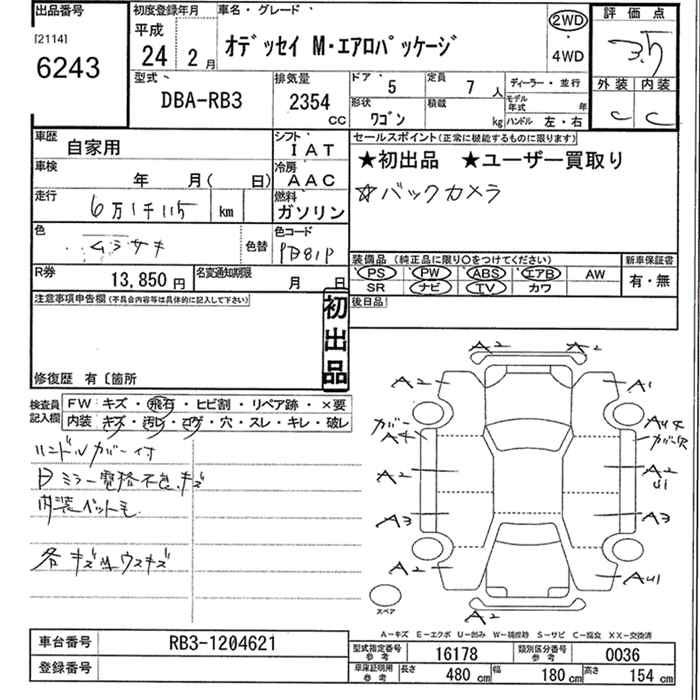 出品番号
[2114]
6243
初度登録年月
平成
24年 2月
車名・グレード
オデッセイ M・エアロパッケージ
2WD
4WD
評価点
3.5
外装 内装
C C
型式
DBA-RB3
排気量
2354 CC
ドア 5
定員 7人
形状 ワゴン
積載 kg
ディーラー・並行
モデル年式 年
ハンドル 左・右
車歴 自家用
シフト IAT
車検 年 月( 日)
冷房 AAC
走行 6万1千115 km
燃料 ガソリン
色 ムラサキ
色替
色コード PB81P
R券 13,850円
名変通知期限 月 日
セールスポイント(正常に機能するものに限ります)
★初出品 ★ユーザー買取り
☆バックカメラ
装備品 (純正品に限り○をつけてください)
PS PW ABS エアB AW
SR ナビ TV カワ
新車保証書
有・無
後日品
注意事項申告欄(不具合内容等は具体的に記入して下さい)
初出品
修復歴 有〔箇所
検査員記入欄
FW キズ・飛石・ヒビ割・リペア跡・×要
内装 キズ・汚レ・コゲ・穴・スレ・キレ・破レ
ハンドルカバー付
日ミラー電格不良.キズ
内装ペット毛
各キズM ウスキズ
A2 A2
A2 A1
カバー A4
A2 A2
U1
A3 A3
A2 AU1
A2
スペア
A−キズ E−エクボ U−凹み W−補修跡 S−サビ C−腐食 XX−交換済
車台番号 RB3-1204621
登録番号
型式指定番号 参考 16178
類別区分番号 参考 0036
車庫証明用 参考 長さ 480cm 幅 180cm 高さ 154cm